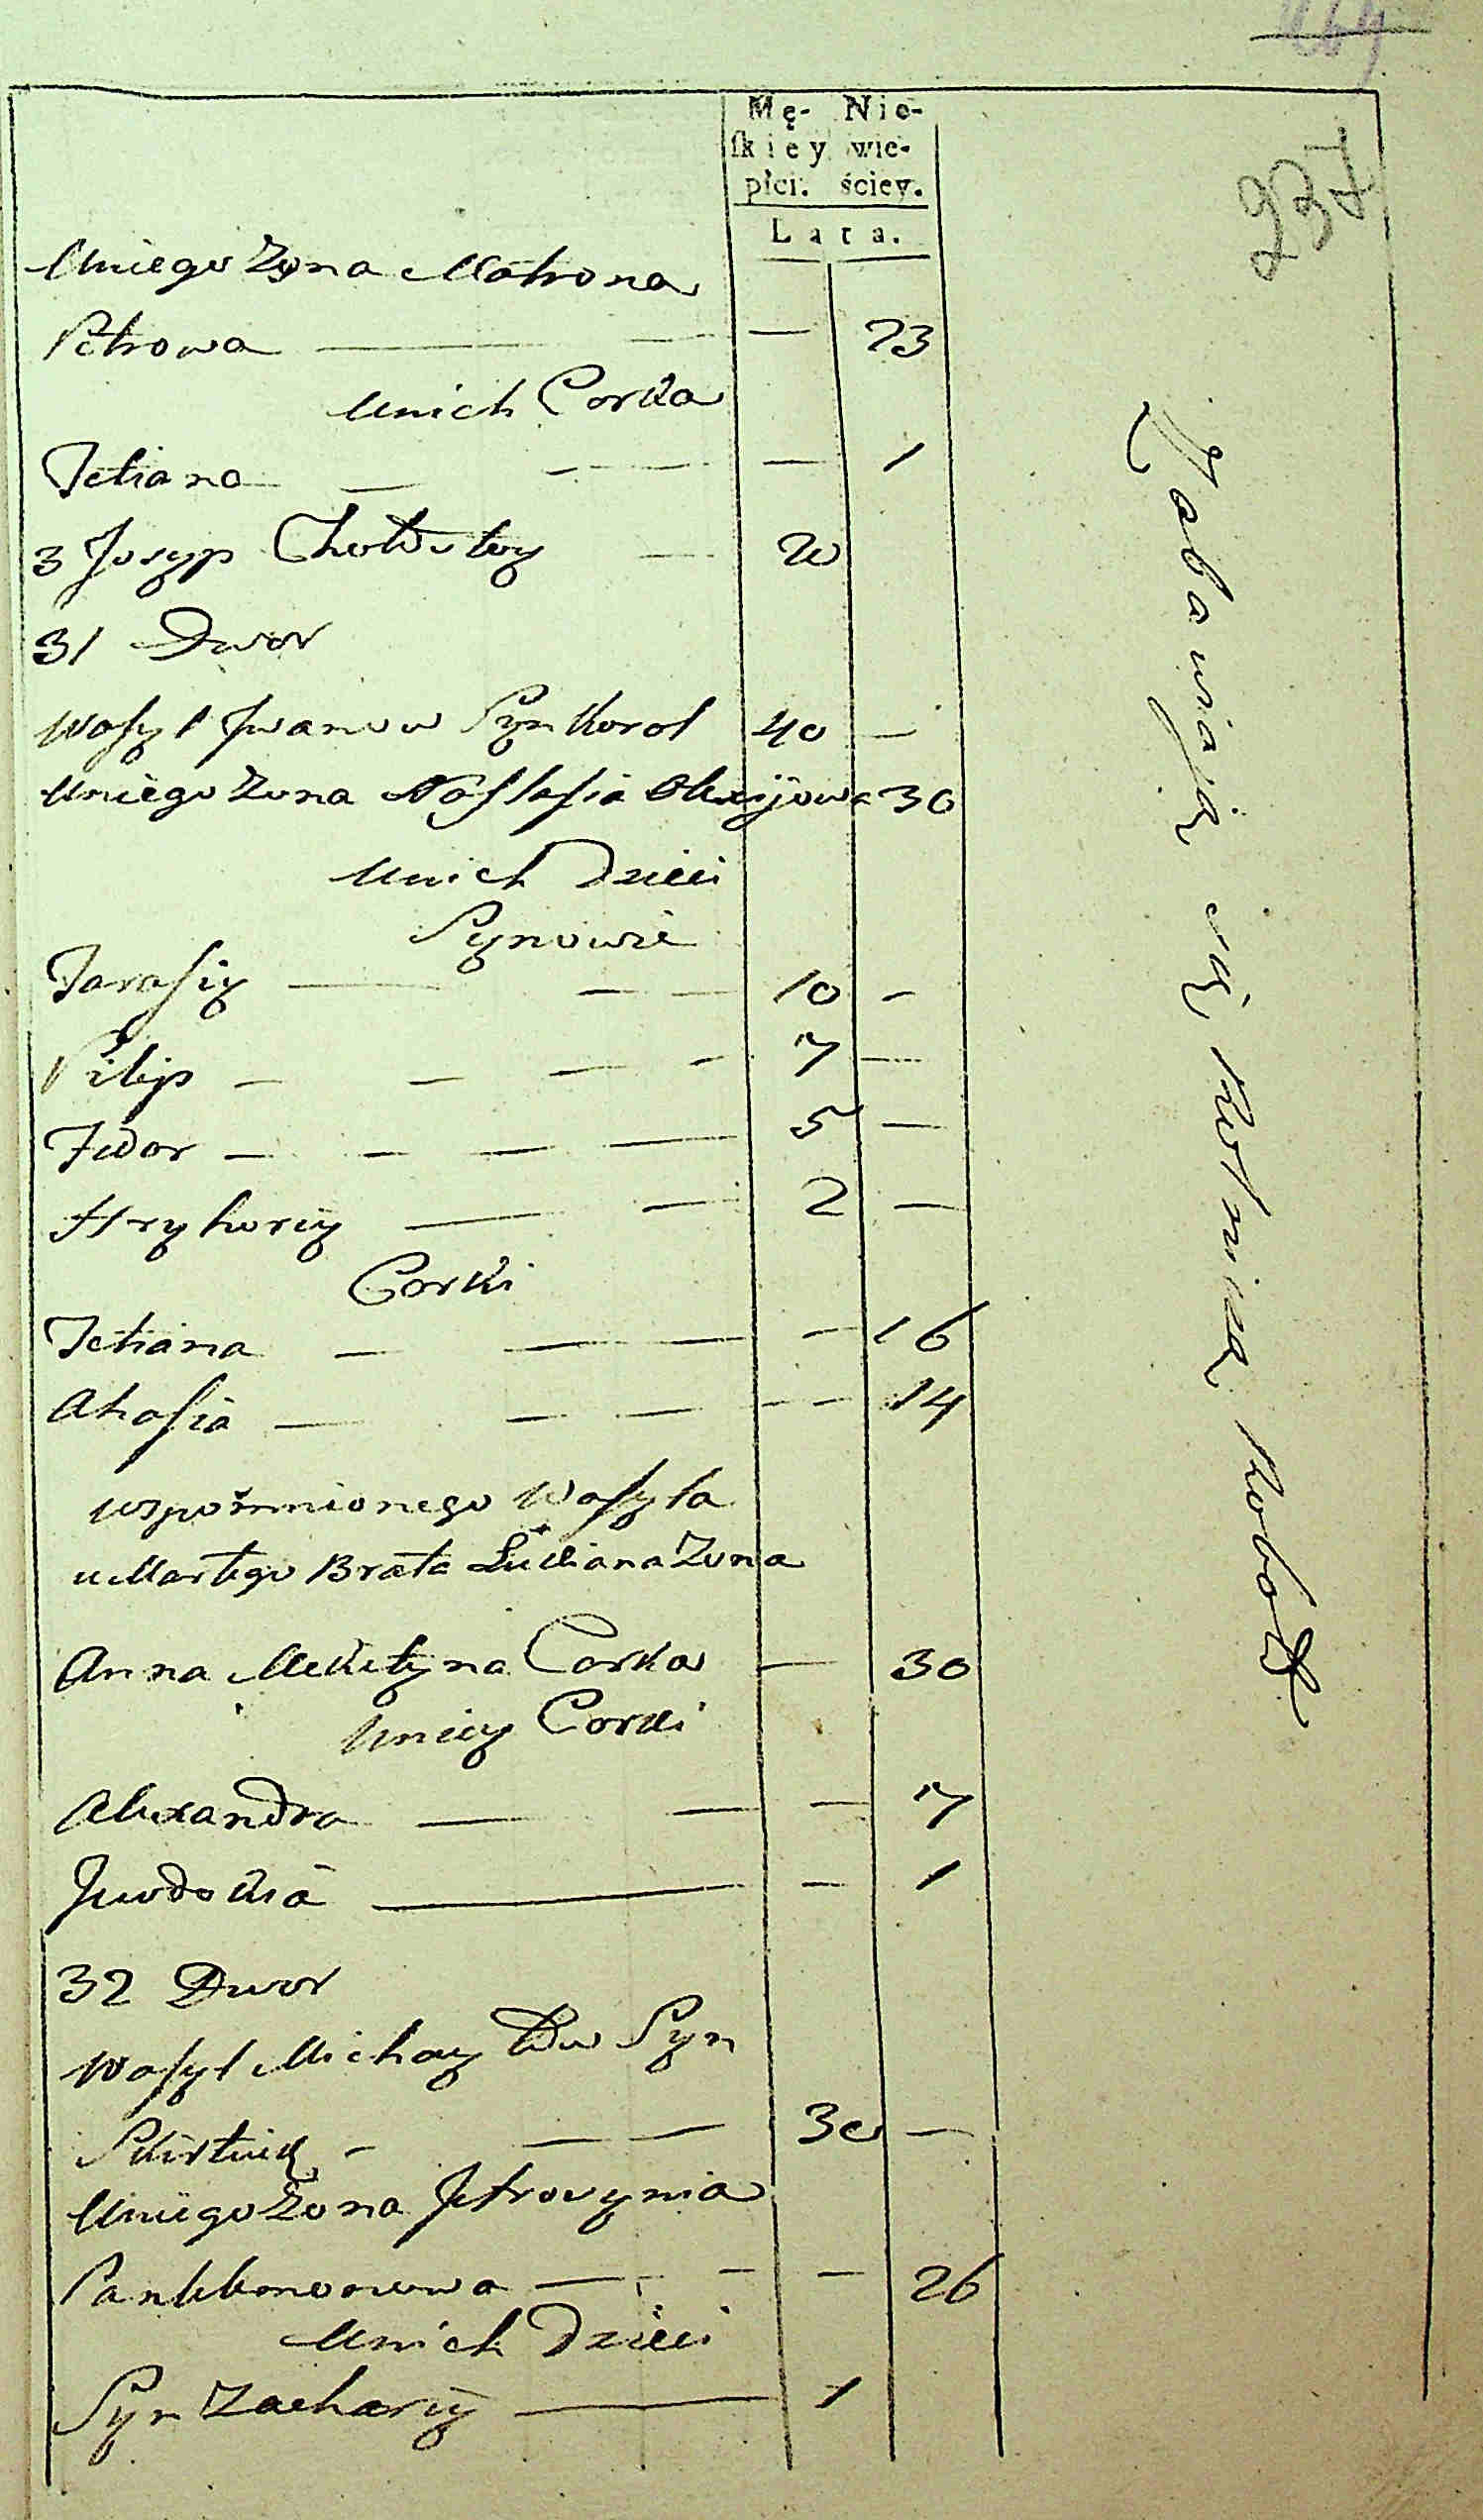 237
Mę- Nie-
ſkiey wie-
płci. ściey.
Lata.
Uniego Zona Matrona
Petrowa — — — 23
Unich Corka
Tetiana — — — 1
3 Josyp — 20
31 Dwor
Wasyl Iwanow Syn Korol 40 —
Uniego Zona Nastasia Olexijowa 30
Unich Dzieci
Synowie
Tarasiy — — — 10 —
Pilip — — — — 7 —
Fedor — — — — 5 —
Hryhoriy — — 2 —
Corki
Tetiana — — — 16
Ahafia — — — — — 14
wspomnionego Wasyla
uMarłego Brata Zona
Anna Mekityna Corka — 30
Uniey Corki
Alexandra — — — 7
Jewdokia — — 1
32 Dwor
Wasyl Michayłow Syn
— — — 30 —
Uniego Zona
— — — 26
Unich Dzieci
Syn Zachariy — 1
Zabawiają się Rolniczą Robotą